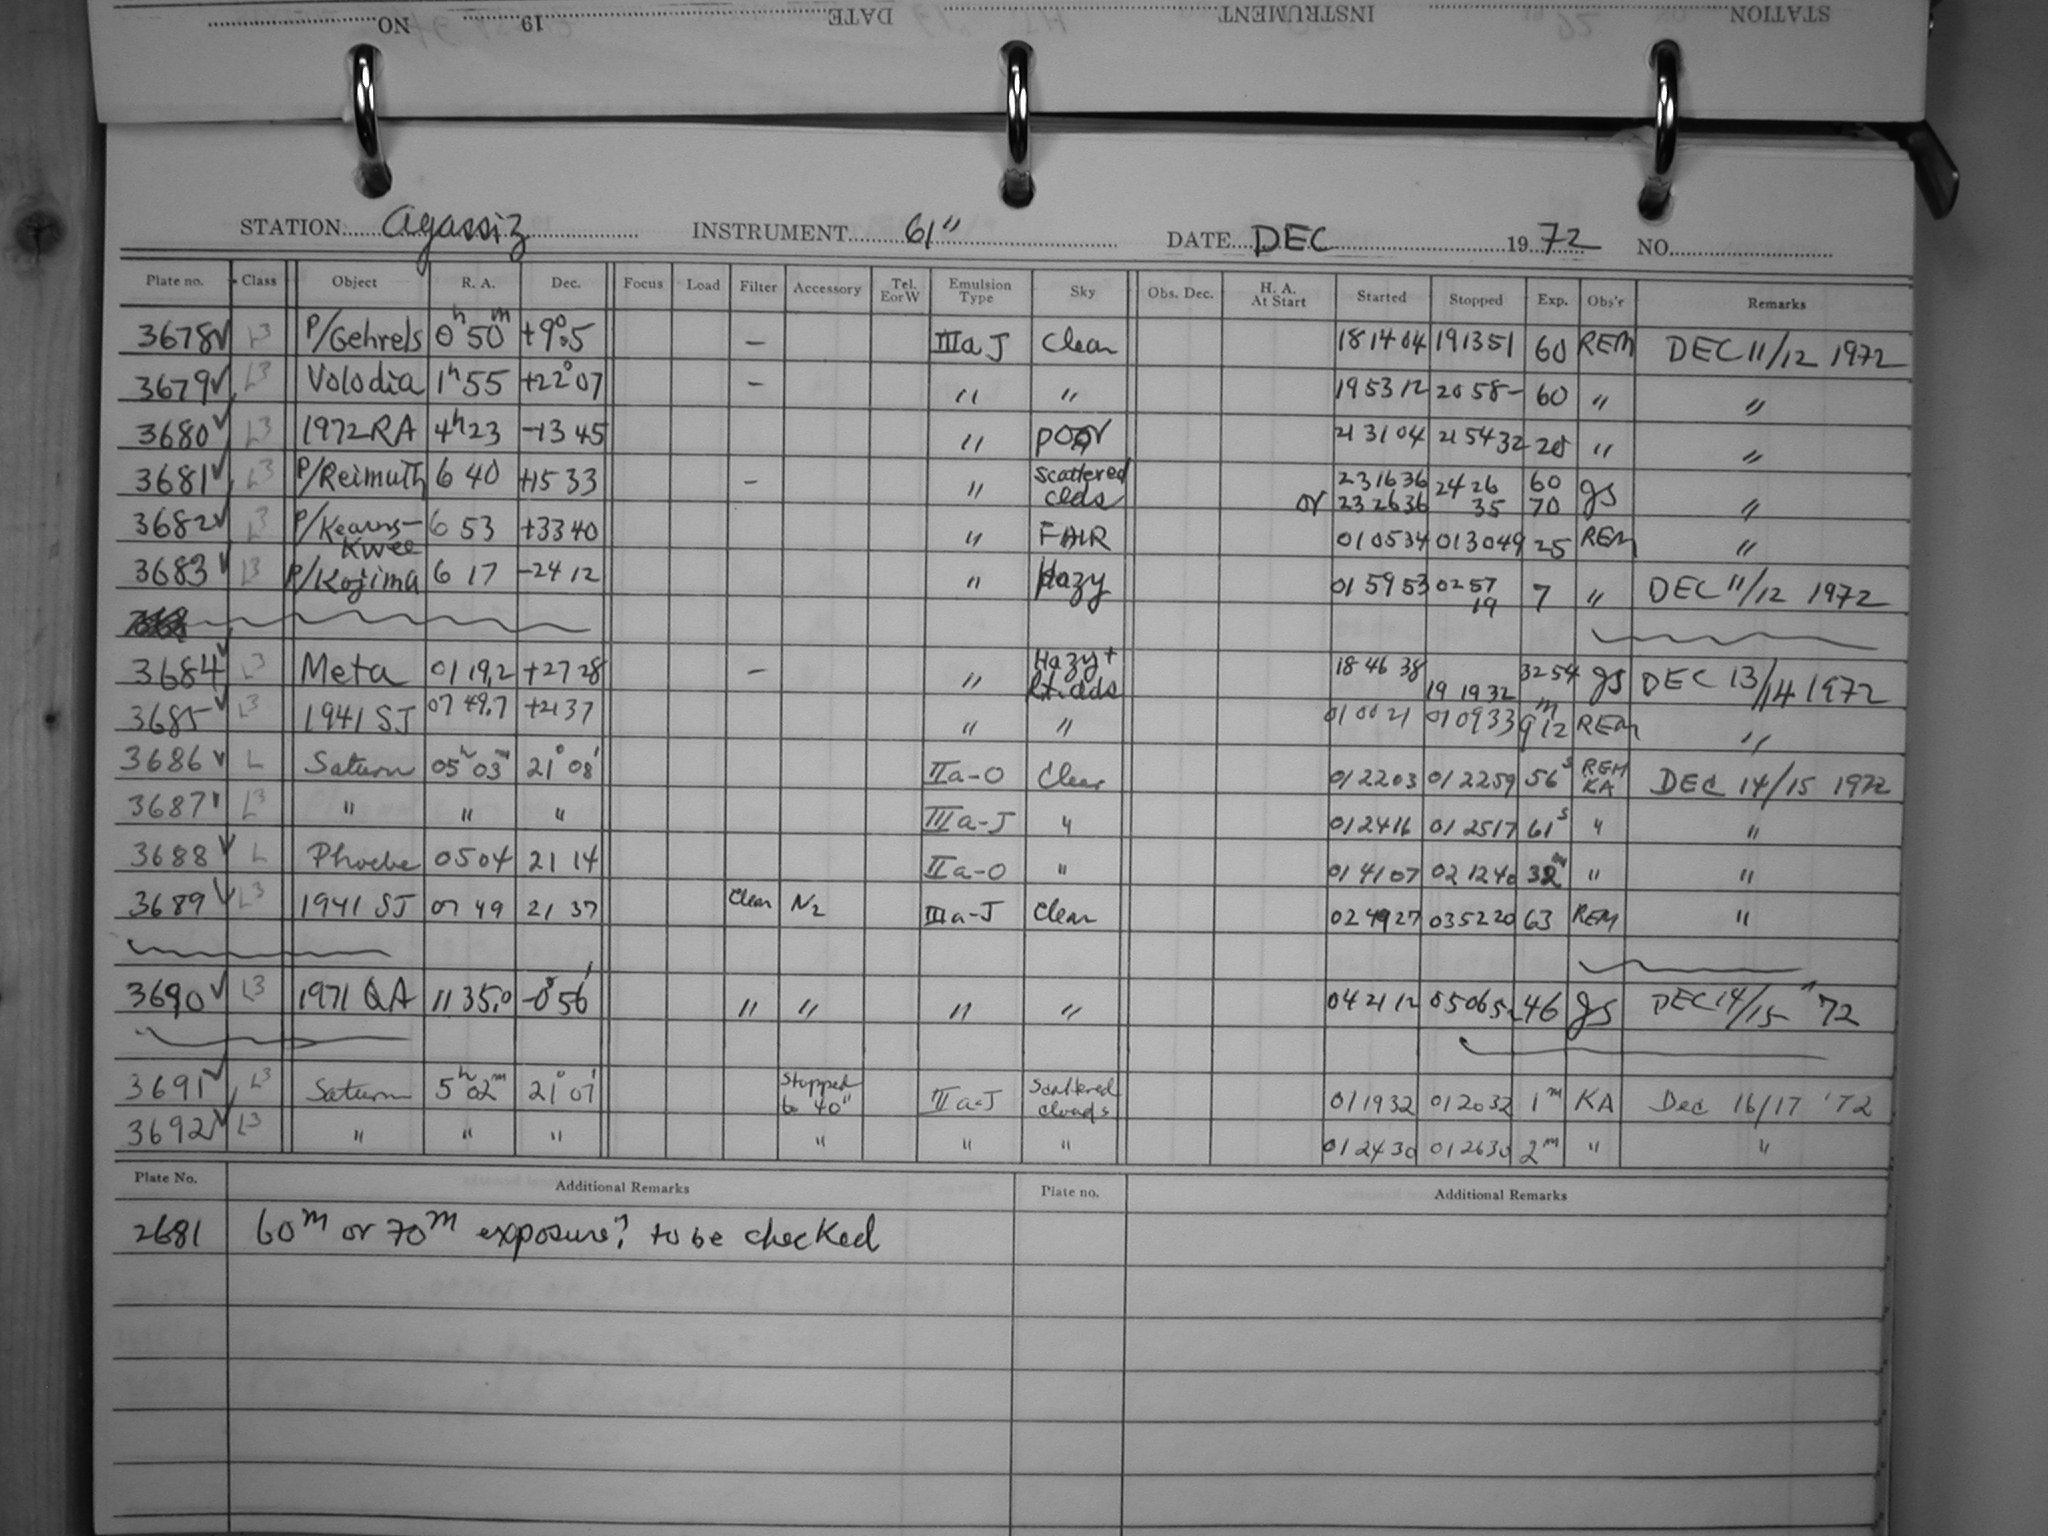 STATION INSTRUMENT DATE 19 NO
STATION Agassiz INSTRUMENT 61" DATE DEC 1972 NO
Plate no. Class Object R. A. Dec. Focus Load Filter Accessory Tel. E or W Emulsion Type Sky Obs. Dec. H. A. At Start Started Stopped Exp. Obs'r Remarks
3678 ✓ L3 P/Gehrels 0h 50m +9°.5 – IIIa J Clear 18 14 04 19 13 51 60 REM DEC 11/12 1972
3679 ✓ L3 Volodia 1h 55 +22° 07 – " " 19 53 12 20 58 – 60 " "
3680 ✓ L3 1972RA 4h 23 –13 45 " poor 21 31 04 21 54 32 20 " "
3681 ✓ L3 P/Reimuth 6 40 +15 33 – " Scattered clds 23 16 36 24 26 60 gs "
or 23 26 36 35 70
3682 ✓ L3 P/Kearns-Kwee 6 53 +33 40 " FAIR 01 05 34 01 30 49 25 REM "
3683 ✓ L3 P/Kojima 6 17 –24 12 " Hazy 01 59 53 02 57 19 7 " DEC 11/12 1972
3684 ✓ L3 Meta 01 19,2 +27 28 – " Hazy + lt. clds 18 46 38 19 19 32 32 54 gs DEC 13/14 1972
3685 ✓ L3 1941 SJ 07 49,7 +21 37 " " 01 00 21 01 09 33 9m 12 REM "
3686 ✓ L Saturn 05h 03m 21° 08' IIa-O Clear 01 22 03 01 22 59 56s REM KA DEC 14/15 1972
3687 ✓ L3 " " " IIIa-J " 01 24 16 01 25 17 61s " "
3688 ✓ L Phoebe 05 04 21 14 IIa-O " 01 41 07 02 12 40 32m " "
3689 ✓ L3 1941 SJ 07 49 21 37 Clear N2 IIIa-J Clear 02 49 27 03 52 20 63 REM "
3690 ✓ L3 1971 QA 11 35,0 –0° 56' " " " " 04 21 12 05 06 5 46 gs DEC 14/15 '72
3691 ✓ L3 Saturn 5h 02m 21° 07' Stopped to 40" IIIa-J Scattered clouds 01 19 32 01 20 32 1m KA Dec 16/17 '72
3692 ✓ L3 " " " " " " 01 24 30 01 26 30 2m " "
Plate No. Additional Remarks Plate no. Additional Remarks
2681 60m or 70m exposure? to be checked